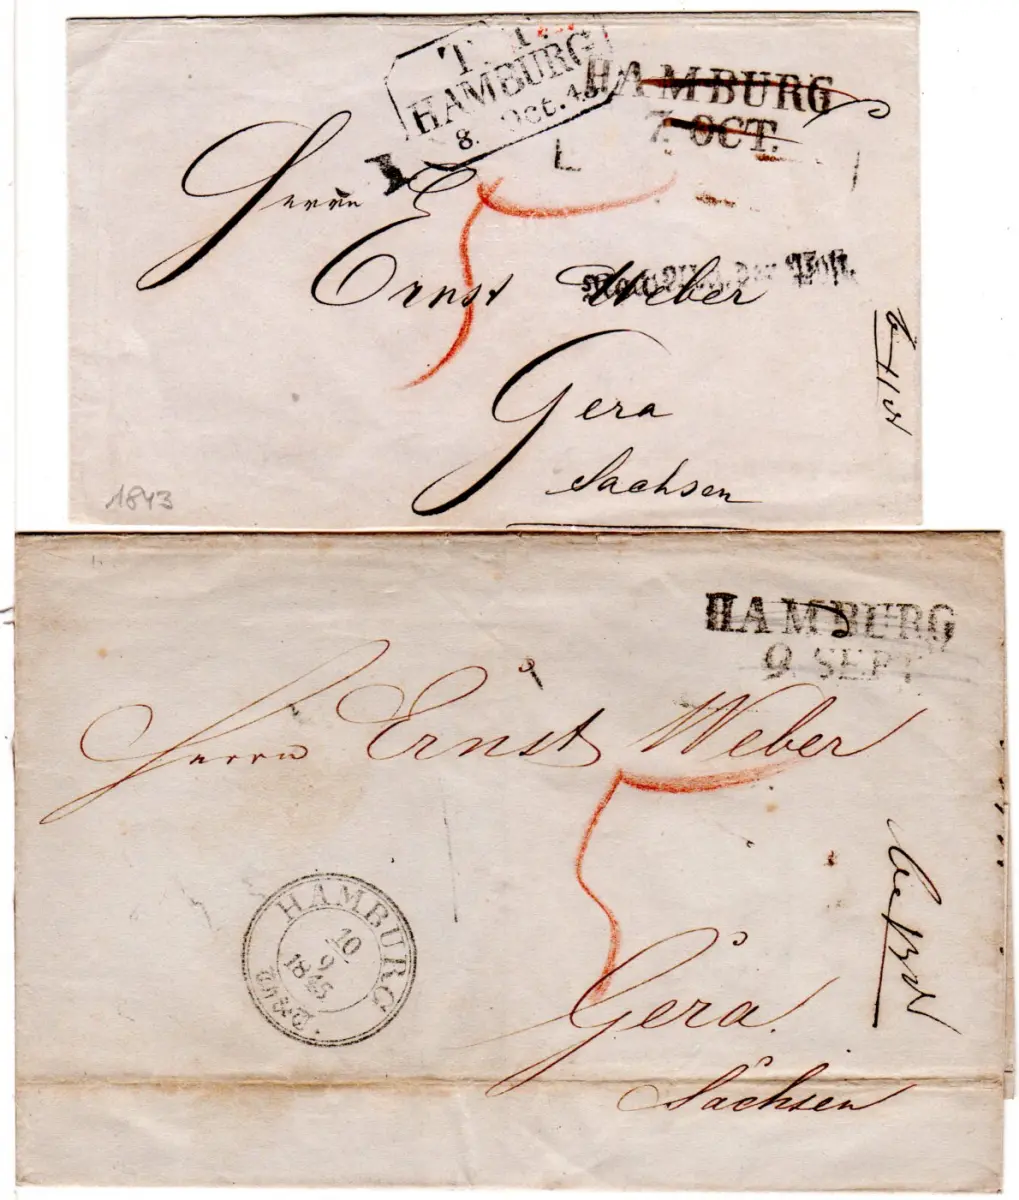 T. T.
HAMBURG
8. Oct. 43
HAMBURG
7. OCT.
Herrn
Ernst Weber
Nach Abg. der Post.
Gera
Sachsen
1843
HAMBURG
9. SEPT
Herrn Ernst Weber
5
HAMBURG
10
9
1845
Gera.
Sachsen